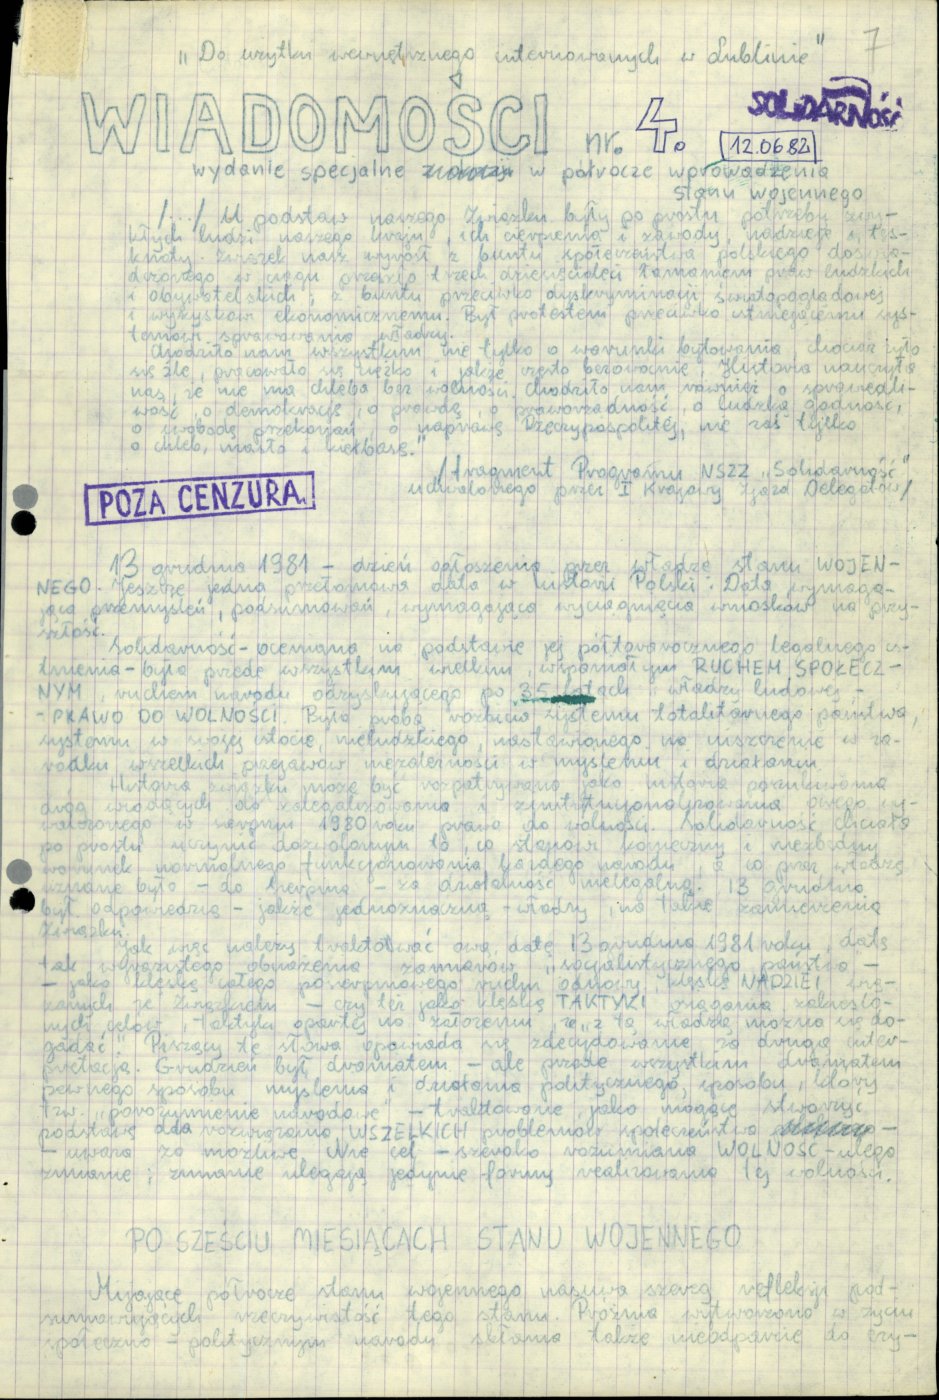 7
„Do użytku wewnętrznego internowanych w Lublinie”
WIADOMOŚCI nr. 4.
SOLIDARNOŚĆ
12.06.82
wydanie specjalne w półrocze wprowadzenia
stanu wojennego
/.../ U podstaw naszego Związku były po prostu potrzeby zwy-
kłych ludzi naszego kraju, ich cierpienia i zawody, nadzieje i tęs-
knoty. Związek nasz wyrósł z buntu społeczeństwa polskiego doświad-
dczonego w ciągu przeszło trzech dziesięcioleci łamaniem praw ludzkich
i obywatelskich, z buntu przeciwko dyskryminacji światopoglądowej
i wyzyskowi ekonomicznemu. Był protestem przeciwko istniejącemu sys-
temowi sprawowania władzy.
Chodziło nam wszystkim nie tylko o warunki bytowania, chociaż żyło
się źle, pracowało się ciężko i jakże często bezowocnie. Historia nauczyła
nas, że nie ma chleba bez wolności. Chodziło nam również o sprawiedli-
wość, o demokrację, o prawdę, o praworządność, o ludzką godność,
o swobodę przekonań, o naprawę Rzeczypospolitej, nie zaś tylko
o chleb, masło i kiełbasę.”
/fragment Programu NSZZ „Solidarność”
uchwalonego przez I Krajowy Zjazd Delegatów/
POZA CENZURĄ
13 grudnia 1981 – dzień ogłoszenia przez władzę stanu WOJEN-
NEGO. Jeszcze jedna przełomowa data w historii Polski. Data wymaga-
jąca przemyśleń, podsumowań, wymagająca wyciągnięcia wniosków na przy-
szłość.
Solidarność – oceniana na podstawie jej półtorarocznego legalnego is-
tnienia – była przede wszystkim wielkim, wspaniałym RUCHEM SPOŁECZ-
NYM, ruchem narodu odzyskującego po 35 latach władzy ludowej –
– PRAWO DO WOLNOŚCI. Była próbą rozbicia systemu totalitarnego państwa,
systemu w swojej istocie, nieludzkiego, nastawionego na niszczenie w za-
rodku wszelkich przejawów niezależności w myśleniu i działaniu.
Historia związku może być rozpatrywana jako historia poszukiwania
dróg wiodących do zalegalizowania i zinstytucjonalizowania owego wy-
walczonego w sierpniu 1980 roku prawa do wolności. Solidarność chciała
po prostu uczynić dozwolonym to, co stanowi konieczny i niezbędny
warunek normalnego funkcjonowania każdego narodu, a co przez władzę
uznane było – do sierpnia – za działalność nielegalną. 13 grudnia
był odpowiedzią – jakże jednoznaczną – władzy, na takie zamierzenia
Związku.
Jak więc należy traktować ową datę 13 grudnia 1981 roku, datę
tak wyrazistego obnażenia zamiarów „socjalistycznego państwa” –
– jako klęskę całego posierpniowego ruchu odnowy, klęskę NADZIEI wią-
zanych ze Związkiem – czy też jako klęskę TAKTYKI osiągania zakreślo-
nych celów, taktyki opartej na założeniu, że „z tą władzą można się do-
gadać”. Piszący te słowa opowiada się zdecydowanie za drugą inter-
pretacją. Grudzień był dramatem – ale przede wszystkim dramatem
pewnego sposobu myślenia i działania politycznego, sposobu, który
tzw. „porozumienie narodowe” – traktowane, jako mogące stworzyć
podstawę dla rozwiązania WSZELKICH problemów społeczeństwa –
– uważa za możliwe. Nie cel – szeroko rozumiana WOLNOŚĆ – ulega
zmianie; zmianie ulegają jedynie formy realizowania tej wolności.
PO SZEŚCIU MIESIĄCACH STANU WOJENNEGO
Mijające półrocze stanu wojennego nasuwa szereg refleksji pod-
sumowujących rzeczywistość tego stanu. Próżnia wytworzona w życiu
społeczno – politycznym narodu skłania także nieodparcie do czy-